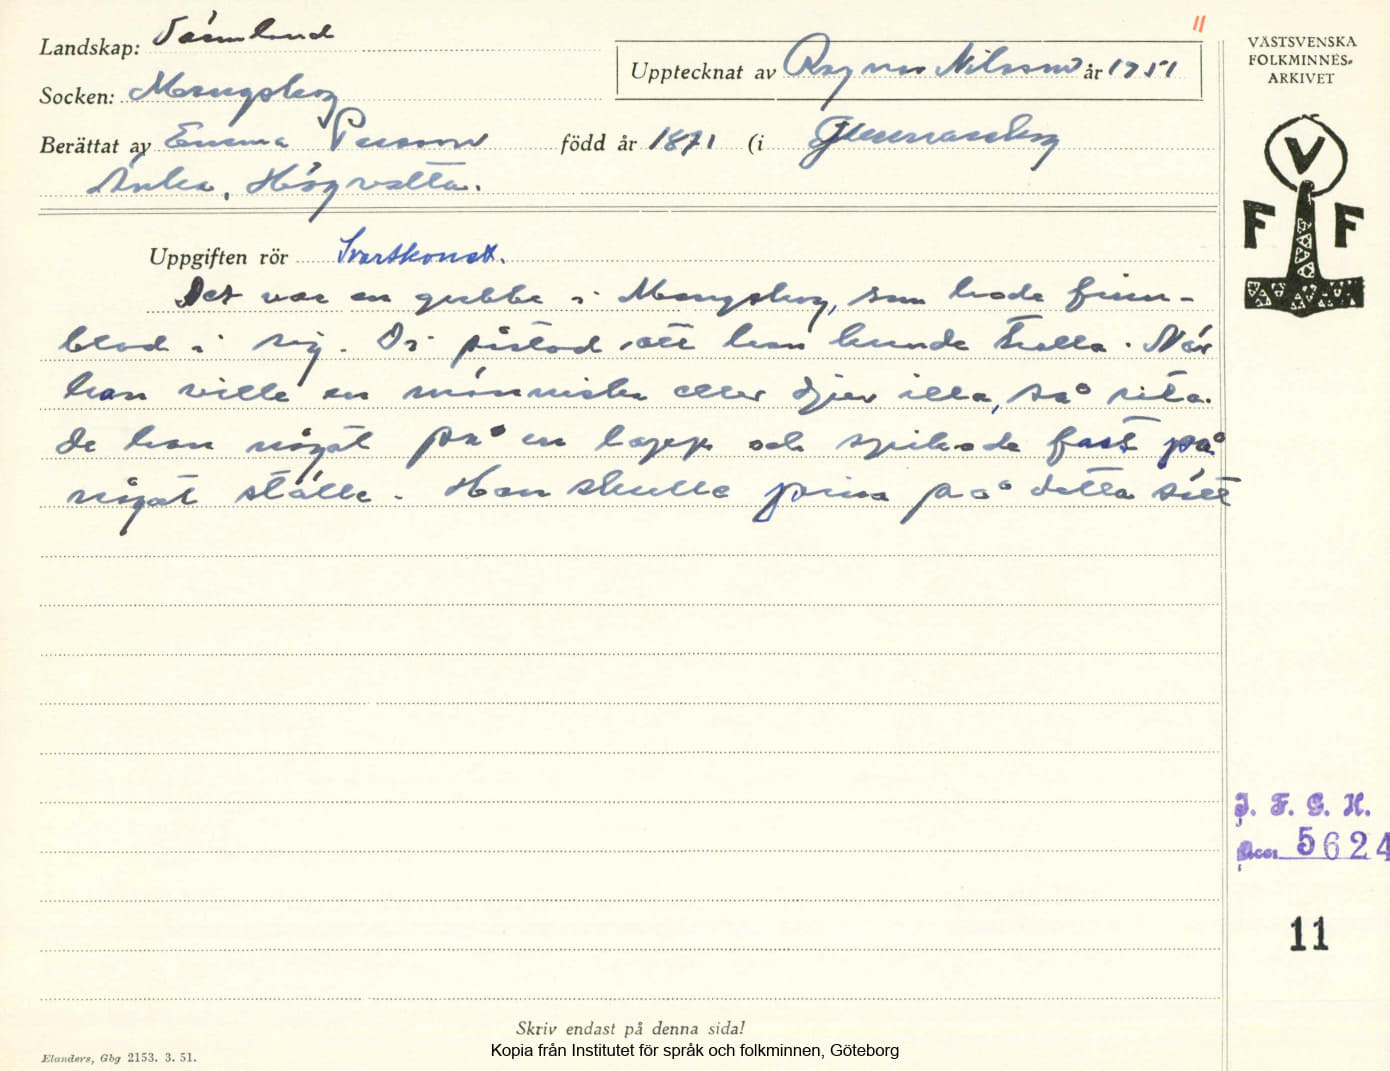 11
Landskap: Värmland
Upptecknat av Ragnar Nilsson år 1951
VÄSTSVENSKA
FOLKMINNES-
ARKIVET
Socken: Mangskog
Berättat av Emma Persson född år 1871 (i Gunnarskog
Änka, Högvalta.
V
F F
Uppgiften rör Svartkonst.
Det var en gubbe i Mangskog, som hade finn-
blod i sig. Di påstod att han kunde trolla. När
han ville en människa eller djur illa, så rita-
de han något på en lapp och spikade fast på
något ställe. Han skulle pina på detta sätt
I. F. G. H.
Acc. 5624
11
Skriv endast på denna sida!
Kopia från Institutet för språk och folkminnen, Göteborg
Elanders, Gbg 2153. 3. 51.